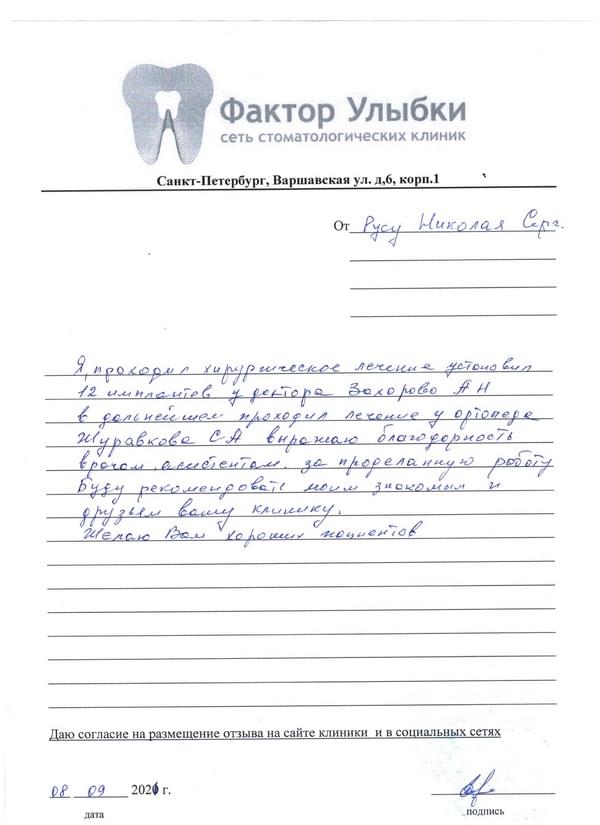 Фактор Улыбки
сеть стоматологических клиник
Санкт-Петербург, Варшавская ул. д,6, корп.1
От Русу Николая Серг.
Я, проходил хирургическое лечение установил
12 имплантов у доктора Захарово АН
в дальнейшем проходил лечение у ортопеда
Журавкова СА выражаю благодорность
врачам, асистентам. за проделанную работу
Буду рекомендовать моим знакомым и
друзьям вашу клинику.
Желаю Вам хороших пациентов
Даю согласие на размещение отзыва на сайте клиники и в социальных сетях
08 09 2021 г.
дата подпись